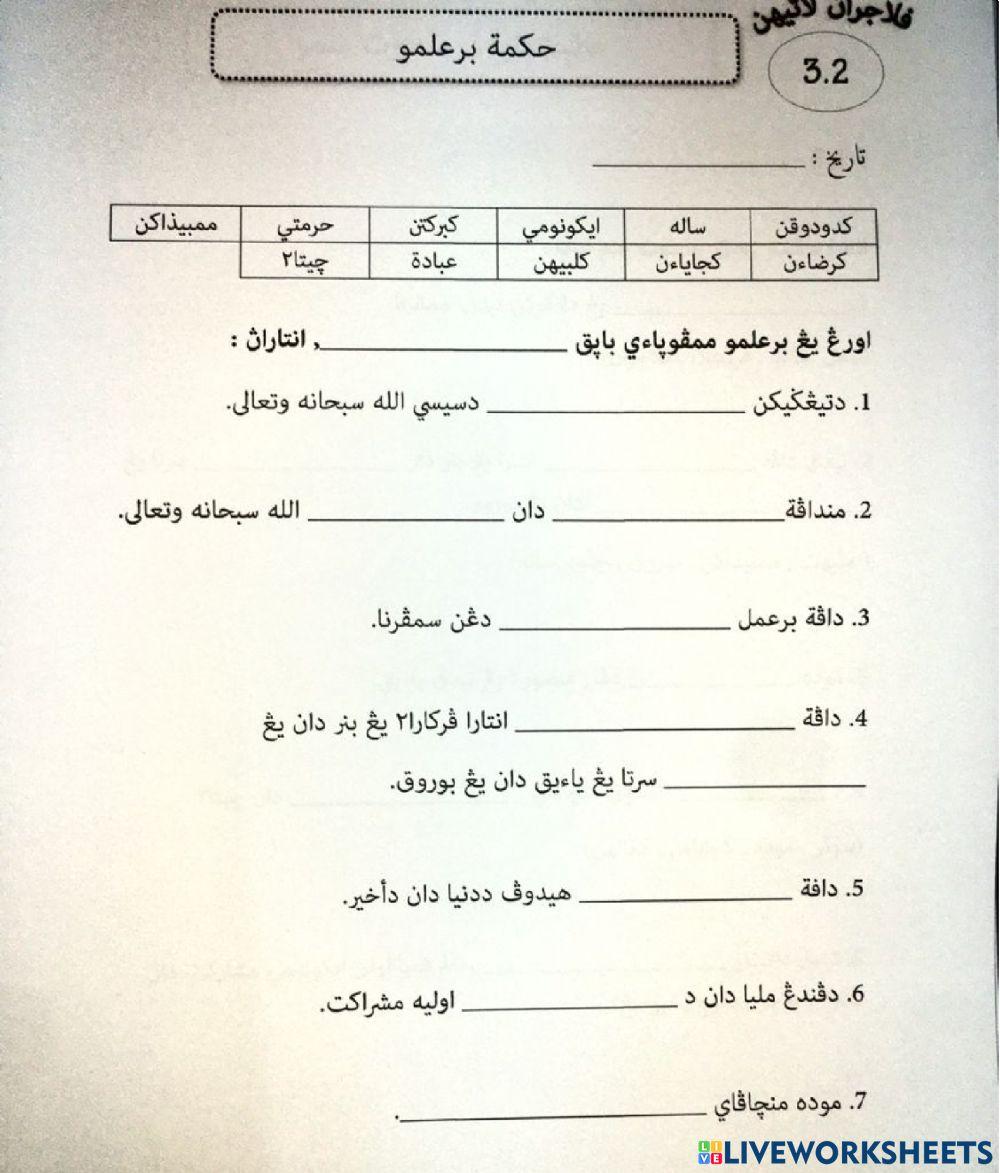 ڤلاجرن لاتيهن
3.2
حكمة برعلمو
تاريخ : ____________
كدودوقن ساله ايكونومي كبركتن حرمتي ممبيذاكن
كرضاءن كجاياءن كلبيهن عبادة چيتا٢
اورڠ يڠ برعلمو ممڤوڽاءي باڽق ____________, انتاراڽ :
1. دتيڠڬيكن ____________ دسيسي الله سبحانه وتعالى.
2. منداڤة____________ دان ____________ الله سبحانه وتعالى.
3. داڤة برعمل ____________ دڠن سمڤرنا.
4. داڤة ____________ انتارا ڤركارا٢ يڠ بنر دان يڠ
____________ سرتا يڠ باءيق دان يڠ بوروق.
5. دافة ____________ هيدوڤ ددنيا دان دأخير.
6. دڤندڠ مليا دان د ____________ اوليه مشراكت.
7. موده منچاڤاي ____________.
LIVEWORKSHEETS